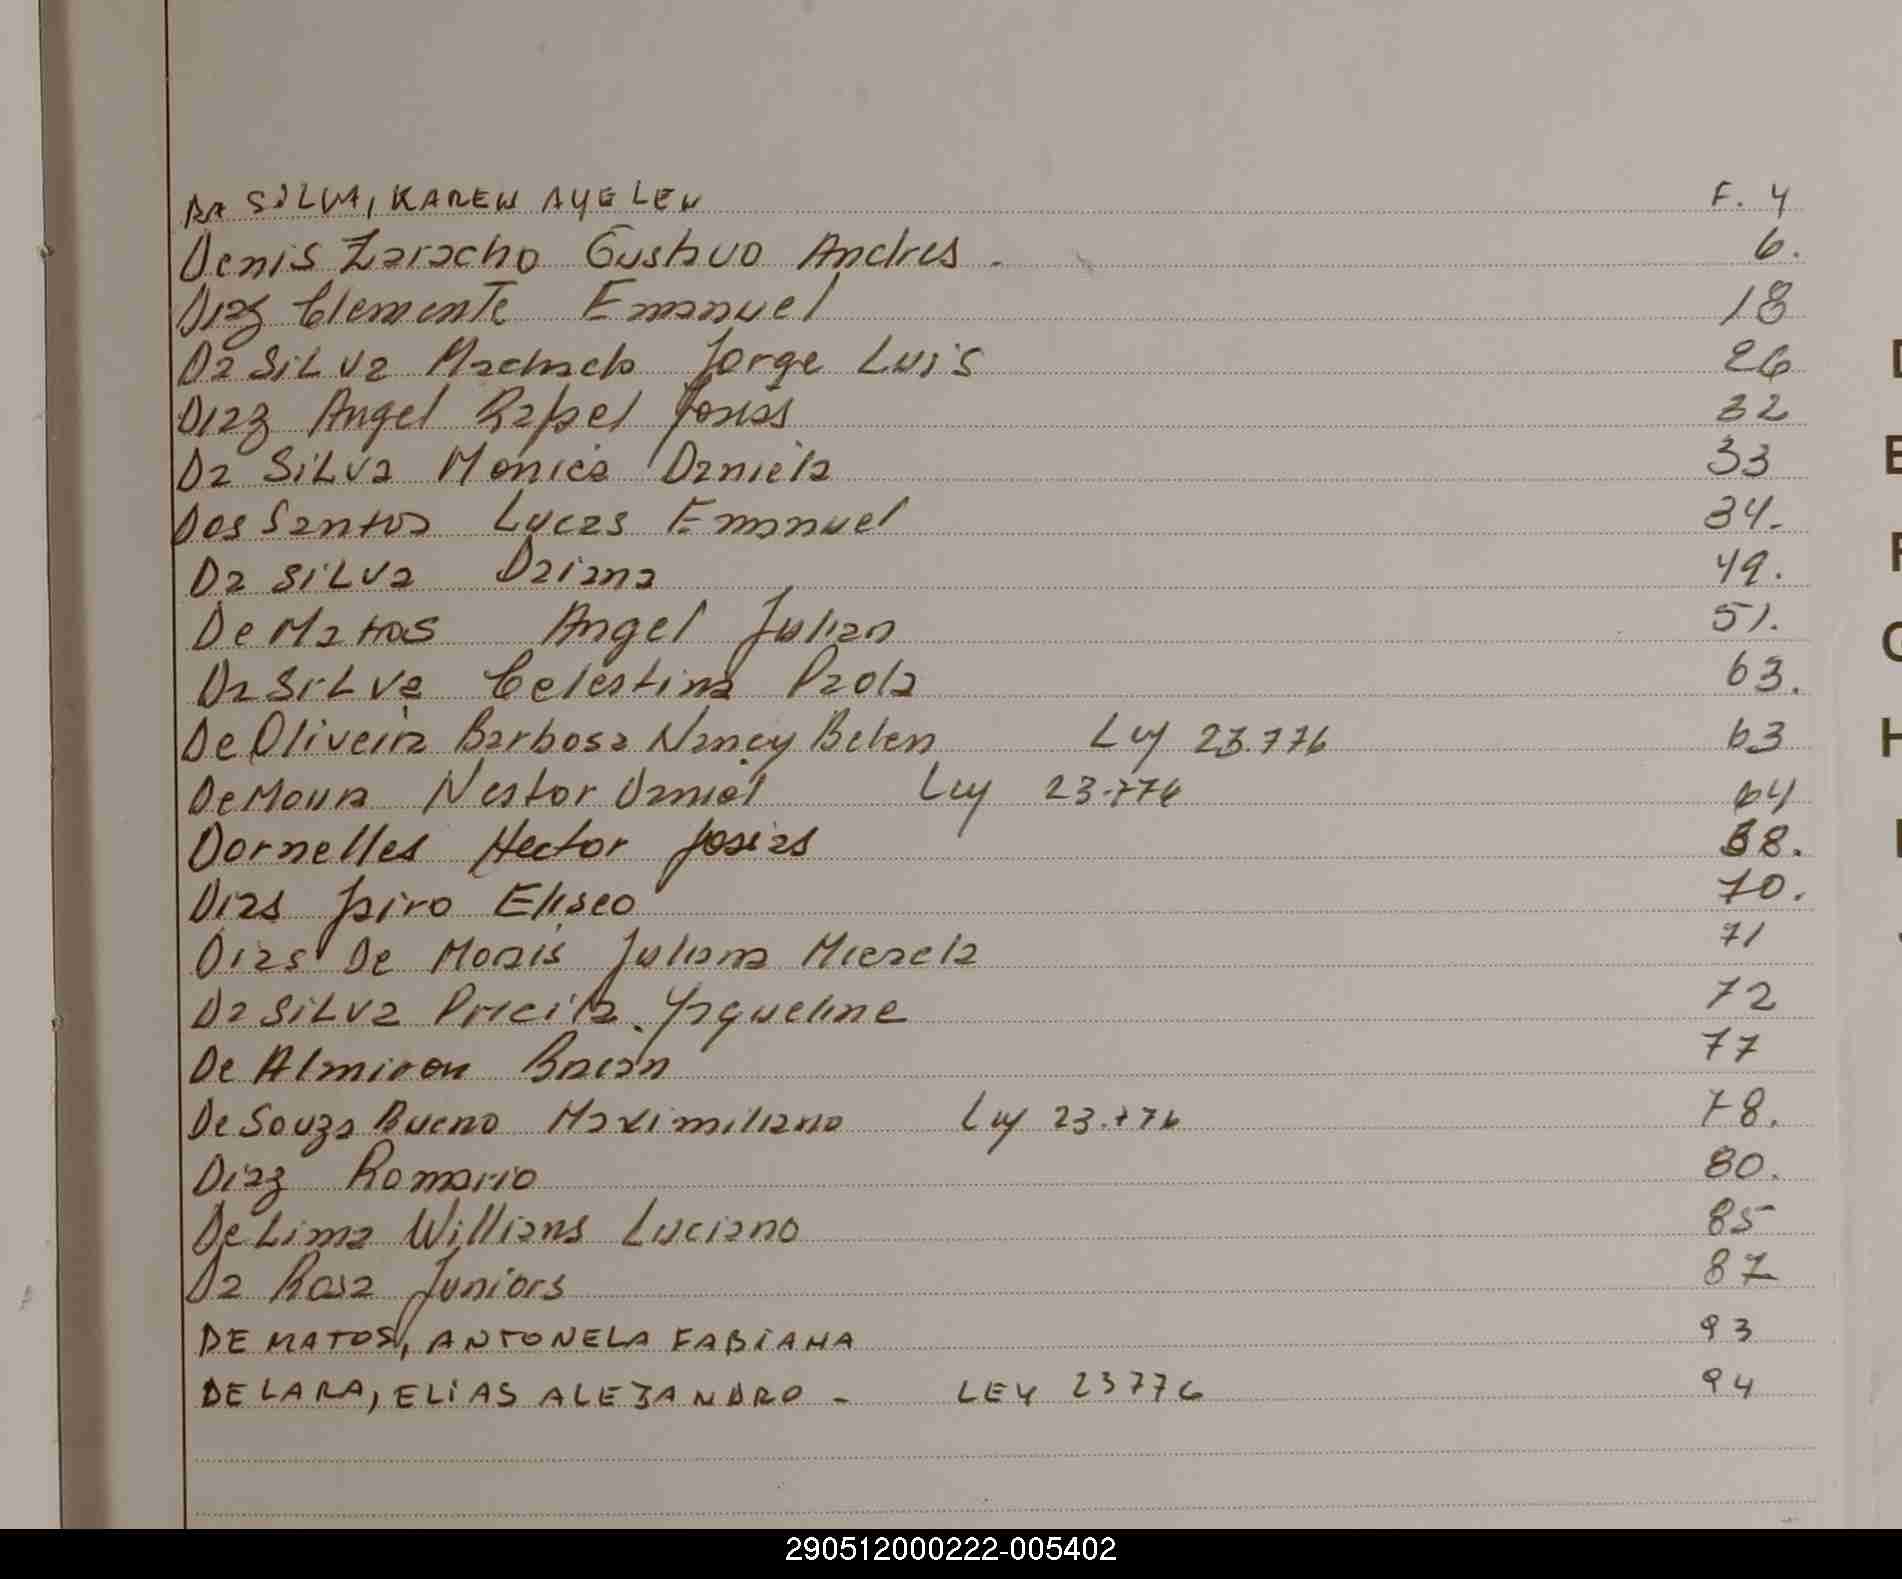 DA SILVA, KAREN AYELEN F. 4
Denis Zaracho Gustavo Andres - 6.
Diaz Clemente Emanuel 18
Da SiLva Machado Jorge Luis 26
Diaz Angel Rafael Jonas 32
Da SiLva Monica Daniela 33
Dos Santos Lucas Emanuel 34.
Da SiLva Daiana 49.
De Mattos Angel Julian 51.
Da SiLva Celestina Paola 63.
De Oliveira Barbosa Nancy Belen Ley 23.776 63
De Moura Nestor Daniel Ley 23.776 64
Dornelles Hector Josias 68.
Dias Jairo Eliseo 70.
Dias De Morais Juliana Micaela 71
Da SiLva Pricila Yaqueline 72
De Almiron Brian 77
De Souza Bueno Maximiliano Ley 23.776 78.
Diaz Romario 80.
De Lima Willians Luciano 85
Da Rosa Juniors 87
DE MATOS, ANTONELA FABIANA 93
DE LARA, ELIAS ALEJANDRO - LEY 23776 94
290512000222-005402